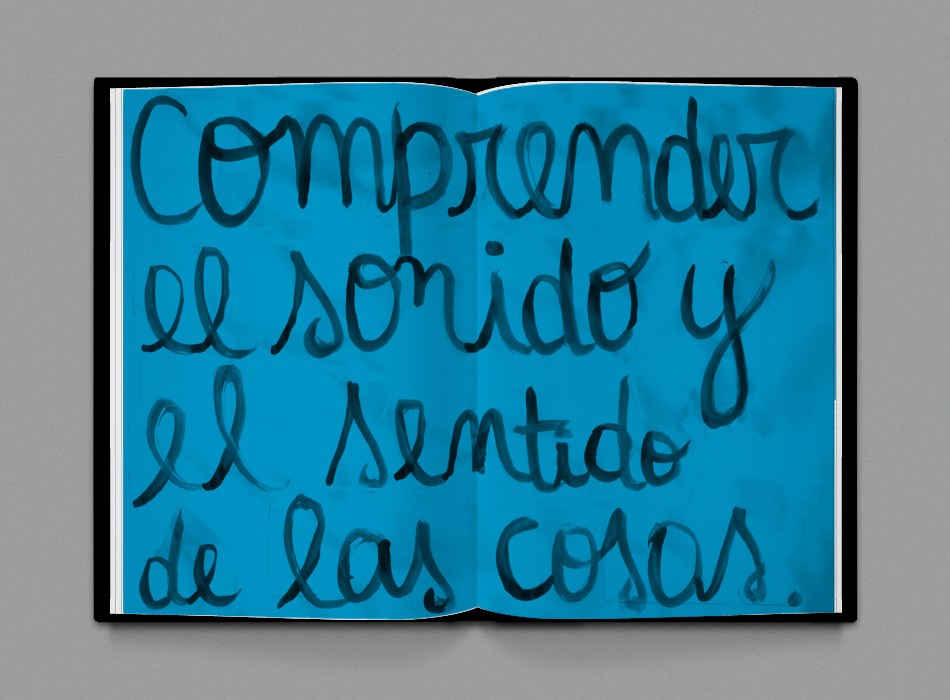 Comprender
el sonido y
el sentido
de las cosas.